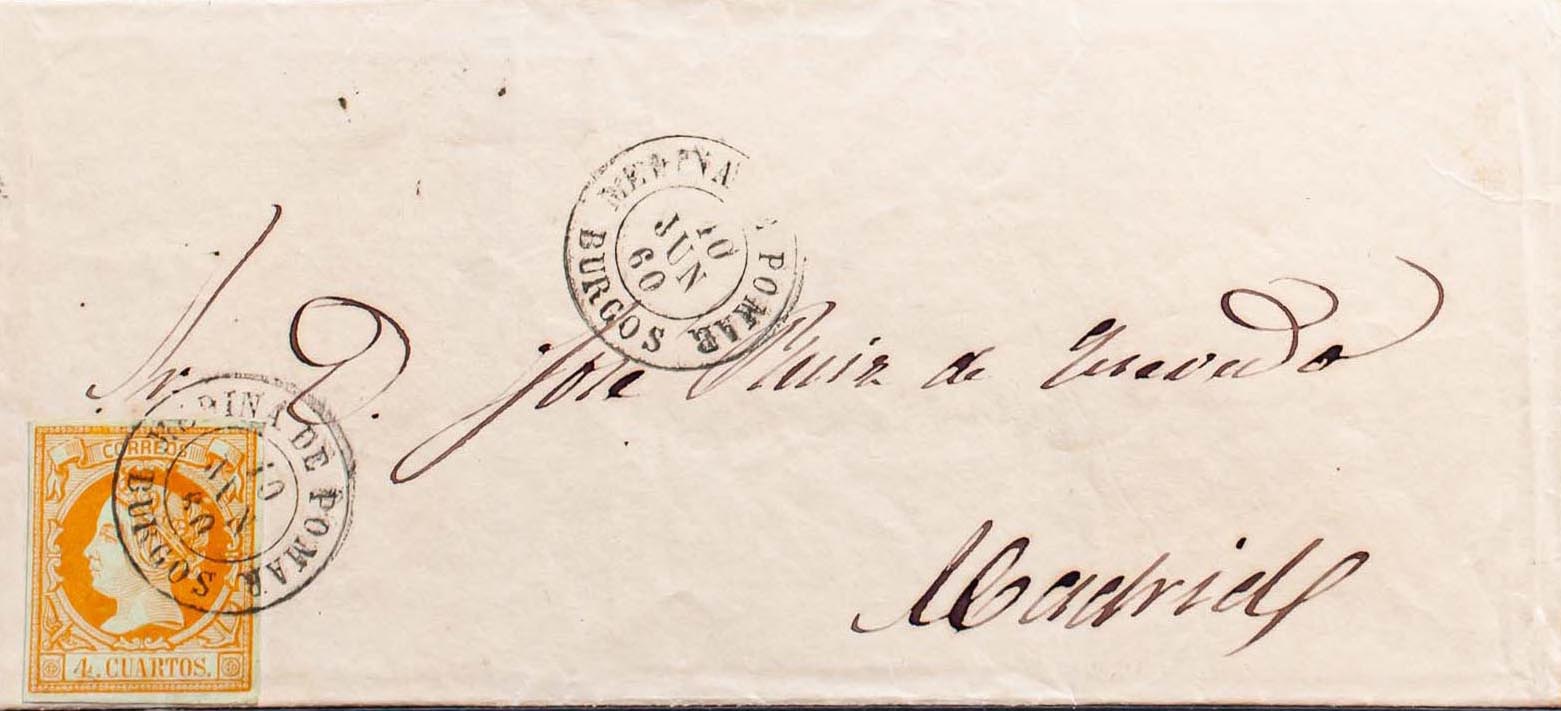 MEDINA DE POMAR
10
JUN
60
BURGOS
Sr. D. José Ruiz de
Madrid
MEDINA DE POMAR
10
JUN
60
BURGOS
CORREOS
4. CUARTOS.